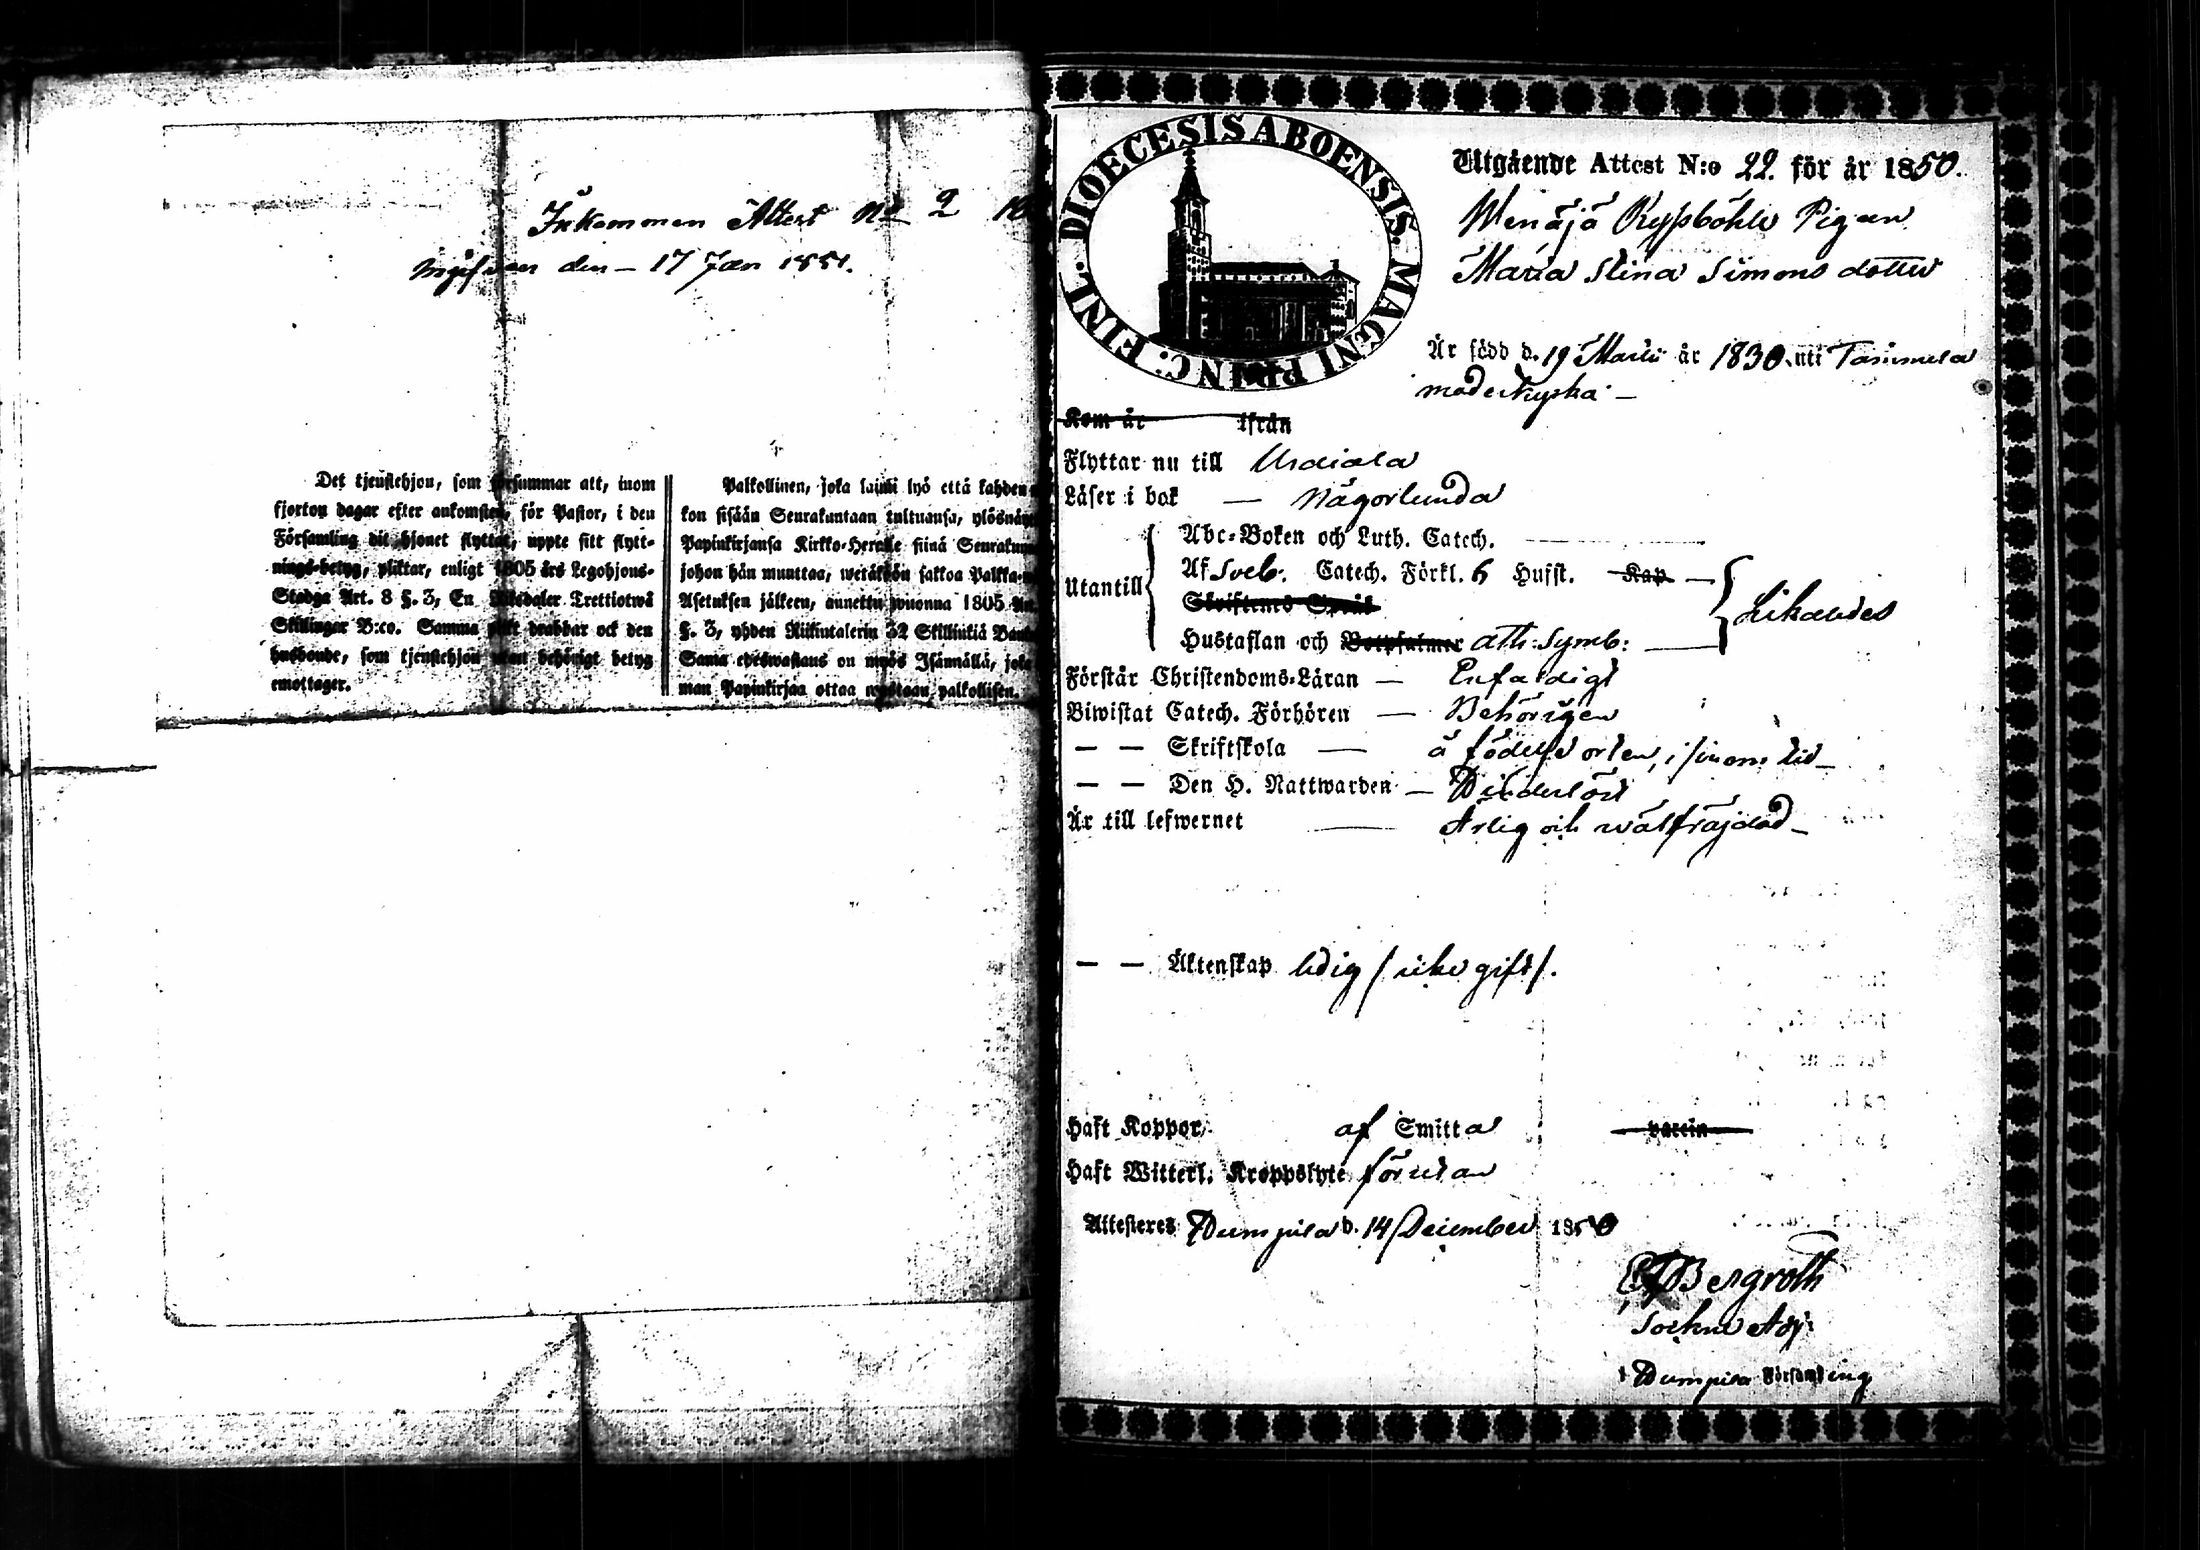 Inkommen Attest No 2 18
ingifven den – 17 Jan 1851.
Det tjenstehjon, som försummar att, inom
fjorton dagar efter ankomsten, för Pastor, i den
Församling dit hjonet flyttat, uppte sitt flytt-
nings-betyg, pliktar, enligt 1805 års Legohjons-
Stadga Art. 8 §. 3, En Riksdaler Trettiotwå
Skillingar B:co. Samma plikt drabbar ock den
husbonde, som tjenstehjon utan behörigt betyg
emottager.
Palkollinen, joka laimi lyö että kahden
kon sisään Seurakuntaan tultuansa, ylösnäyt
Papinkirjansa Kirkko-Herralle siinä Seurakun
johon hän muuttaa, wetäköön sakkoa Palkka-
Asetuksen jälkeen, annettu wuonna 1805 Ar
§. 3, yhden Riikintalerin 32 Skillinkiä Banko
Sama edeswastaus on myös Isännällä, joka
man Papinkirjaa ottaa wastaan palkollisen.
DIOECESIS ABOENSIS. MAGNI PRINC: FINL.
Utgående Attest N:o 22. för år 1850.
Menäjä Rypsböhle Pigan
Maria Stina Simons dotter
Är född d. 19 Martii år 1830. uti Tammela
moderkyrka –
Kom år ifrån
Flyttar nu till Urdiala
Läser i bok — Någorlunda
Utantill
Abc-Boken och Luth. Catech.
Af Sveb. Catech. Förkl. 6 Hufst. Kap —
Skriftenes Språk
Hustaflan och Botpsalmer ath: Symb: —
Likaledes
Förstår Christendoms-Läran — Enfaldigt
Biwistat Catech. Förhören — Behörigen
— — Skriftskola — å födelse orten, i sinom tid –
— — Den H. Nattwarden — Oförderföst
Är till lefwernet — Ärlig och wälfräjdad –
— — Äktenskap ledig / icke gift /.
Haft Koppor af Smitta
Haft Witterl. Kroppslyte förutan
Attesteres Humpila d. 14 December 1850
Bergroth
Sockne Adj:
i Humpila Församling